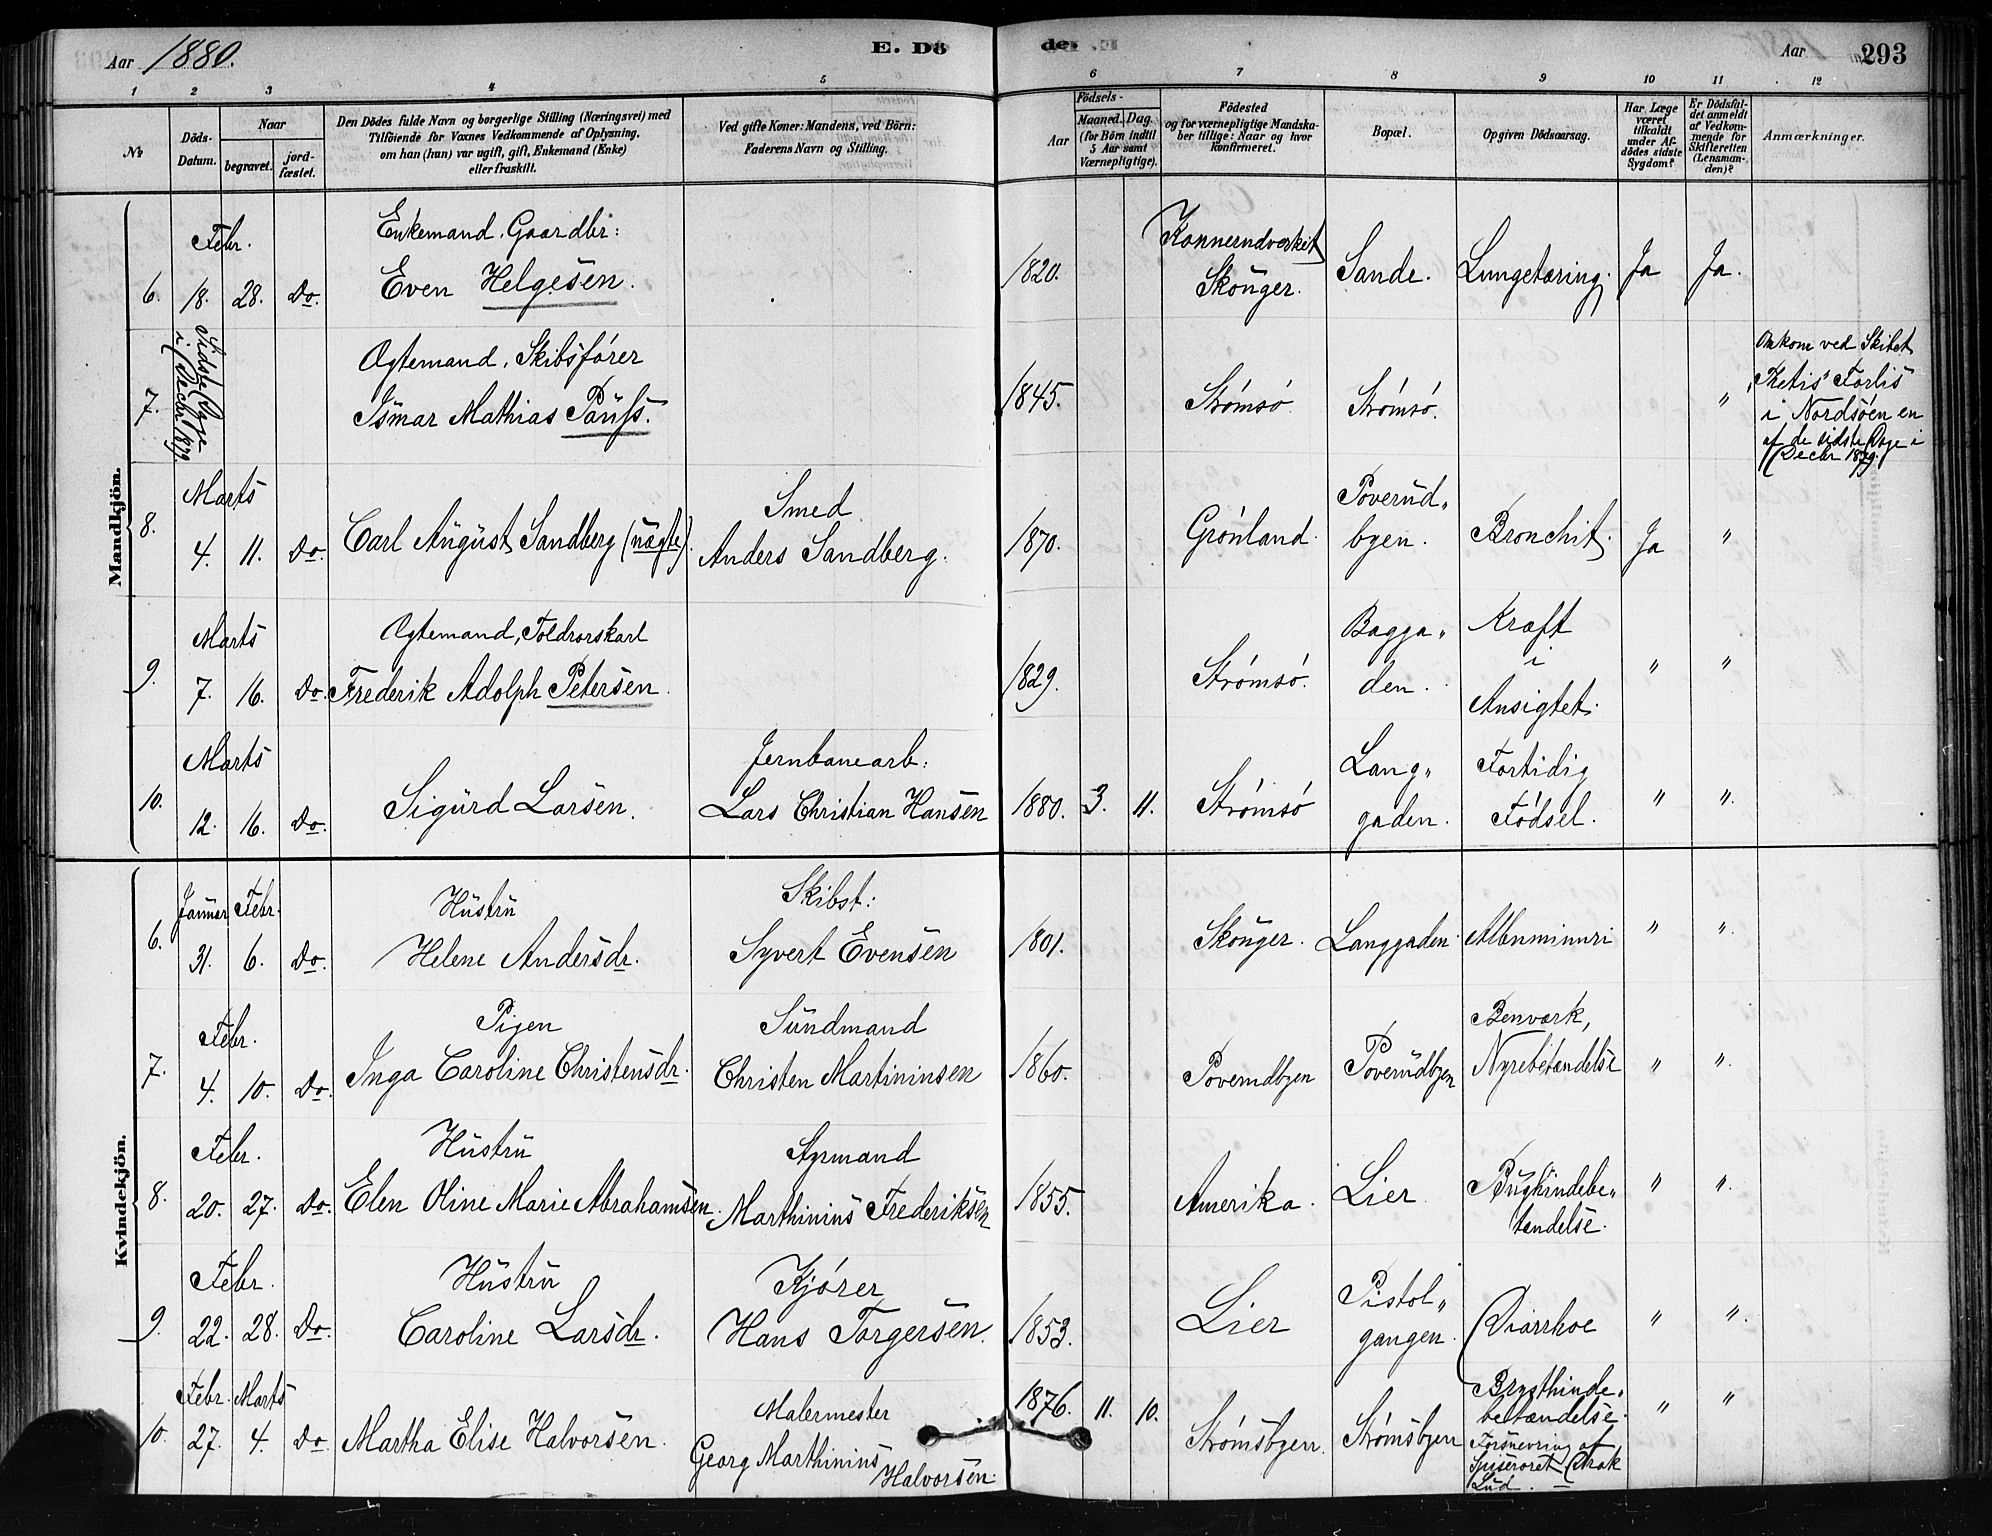 Aar 1880.
E. Dö
de.
Aar
293
1 2 3 4 5 6 7 8 9 10 11 12
No
Döds-
Datum.
Naar
begravet.
jord-
fæstet.
Den Dödes fulde Navn og borgerlige Stilling (Næringsvei) med
Tilföiende for Voxnes Vedkommende af Oplysning,
om han (hun) var ugift, gift, Enkemand (Enke)
eller fraskilt.
Ved gifte Koner: Mandens, ved Börn:
Faderens Navn og Stilling.
Födsels-
Aar
Maaned. Dag.
(for Börn indtil
5 Aar samt
Værnepligtige).
Födested
og for værnepligtige Mandska-
ber tillige: Naar og hvor
konfirmeret.
Bopæl.
Opgiven Dödsaarsag.
Har Læge
været
tilkaldt
under Af-
dödes sidste
Sygdom?
Er Dödsfal-
det anmeldt
af Vedkom-
mende for
Skifteretten
(Lensman-
den)?
Anmærkninger.
Mandkjön.
Febr.
Enkemand. Gaardbr:
6. 18. 28. Do. Even Helgesen.
1820.
Konnerudverket
Skouger.
Sande. Lungetæring. Ja Ja.
7.
Sidste Dage
i Decbr. 1879.
Ægtemand, Skibsfører
Ismar Mathias Paüss.
1845. Strømsø. Strømsø. "
Omkom ved Skibet
"Thetis" Forlis
i Nordsøen en
af de sidste Dage i
Decbr 1879.
8.
Marts
4. 11. Do. Carl August Sandberg (uægte).
Smed
Anders Sandberg.
1870. Grønland.
Poverud-
byen.
Bronchit. Ja "
9.
Marts
7. 16. Do.
Ægtemand, Toldrorskarl
Frederik Adolph Petersen.
1829. Strømsø.
Bagga-
den.
Kræft
i
Ansigtet.
" "
10.
Marts
12. 16. Do. Sigurd Larsen.
Jernbanearb:
Lars Christian Hansen
1880. 3. 11. Strømsø
Lang-
gaden.
Fortidig
Fødsel.
" "
Kvindekjön.
6.
Januar Febr.
31. 6. Do.
Hustru
Helene Andersdr.
Skibst:
Syvert Evensen
1801. Skouger. Langgaden. Albuminuri " "
7.
Febr.
4. 10. Do.
Pigen
Inga Caroline Christensdr.
Sundmand
Christen Martininsen
1860. Poverudbyen Poverudbyen
Benværk,
Nyrebetændelse
" "
8.
Febr.
20. 27. Do.
Hustru
Elen Oline Marie Abrahamsen.
Styrmand
Marthinius Frederiksen
1855. Amerika. Lier
Bughindebe-
tændelse.
" "
9.
Febr.
22. 28. Do.
Hustru
Caroline Larsdr.
Kjører
Hans Torgersen.
1853. Lier
Pistol-
gangen.
Diarrhoe " "
10.
Febr. Marts
27. 4. Do. Martha Elise Halvorsen.
Malermester
Georg Marthinius
Halvorsen.
1876. 11. 10. Strømsbyen. Strømsbyen
Brysthinde-
betændelse.
Forsnevring af
Spiserøret Drak
Lud.
" "